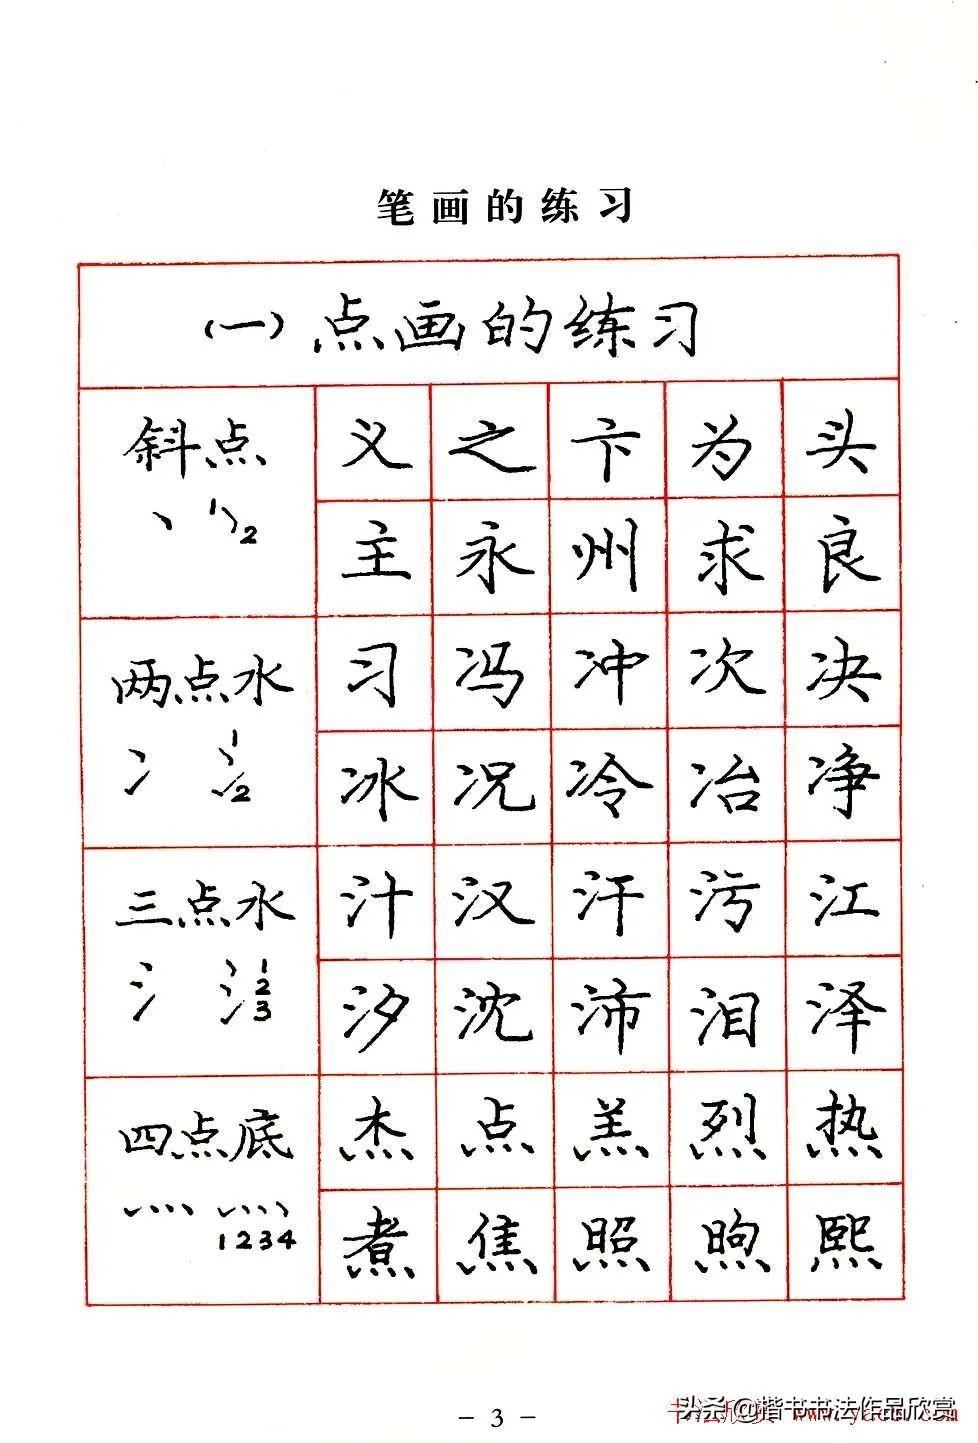 笔画的练习
(一)点画的练习
斜点
丶 1 2
义 之 卞 为 头
主 永 州 求 良
两点水
冫 1 2
习 冯 冲 次 决
冰 况 冷 冶 净
三点水
氵 1 2 3
汁 汉 汗 污 江
汐 沈 沛 泪 泽
四点底
灬 1234
杰 点 羔 烈 热
煮 焦 照 煦 熙
- 3 -
头条@楷书书法作品欣赏